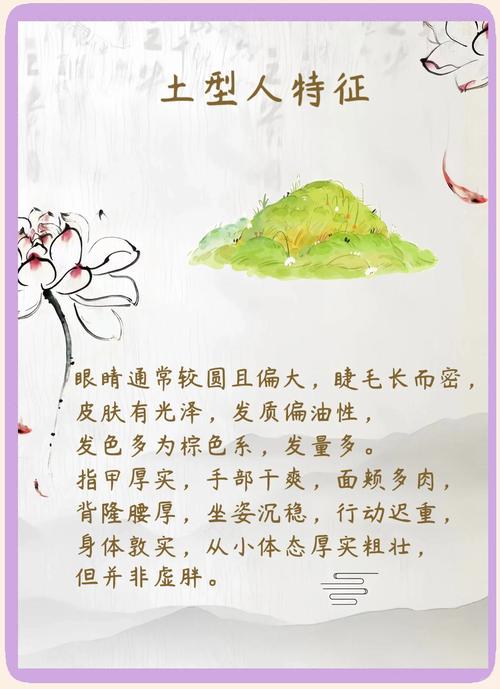 土型人特征
眼睛通常较圆且偏大，睫毛长而密，
皮肤有光泽，发质偏油性，
发色多为棕色系，发量多。
指甲厚实，手部干爽，面颊多肉，
背隆腰厚，坐姿沉稳，行动迟重，
身体敦实，从小体态厚实粗壮，
但并非虚胖。